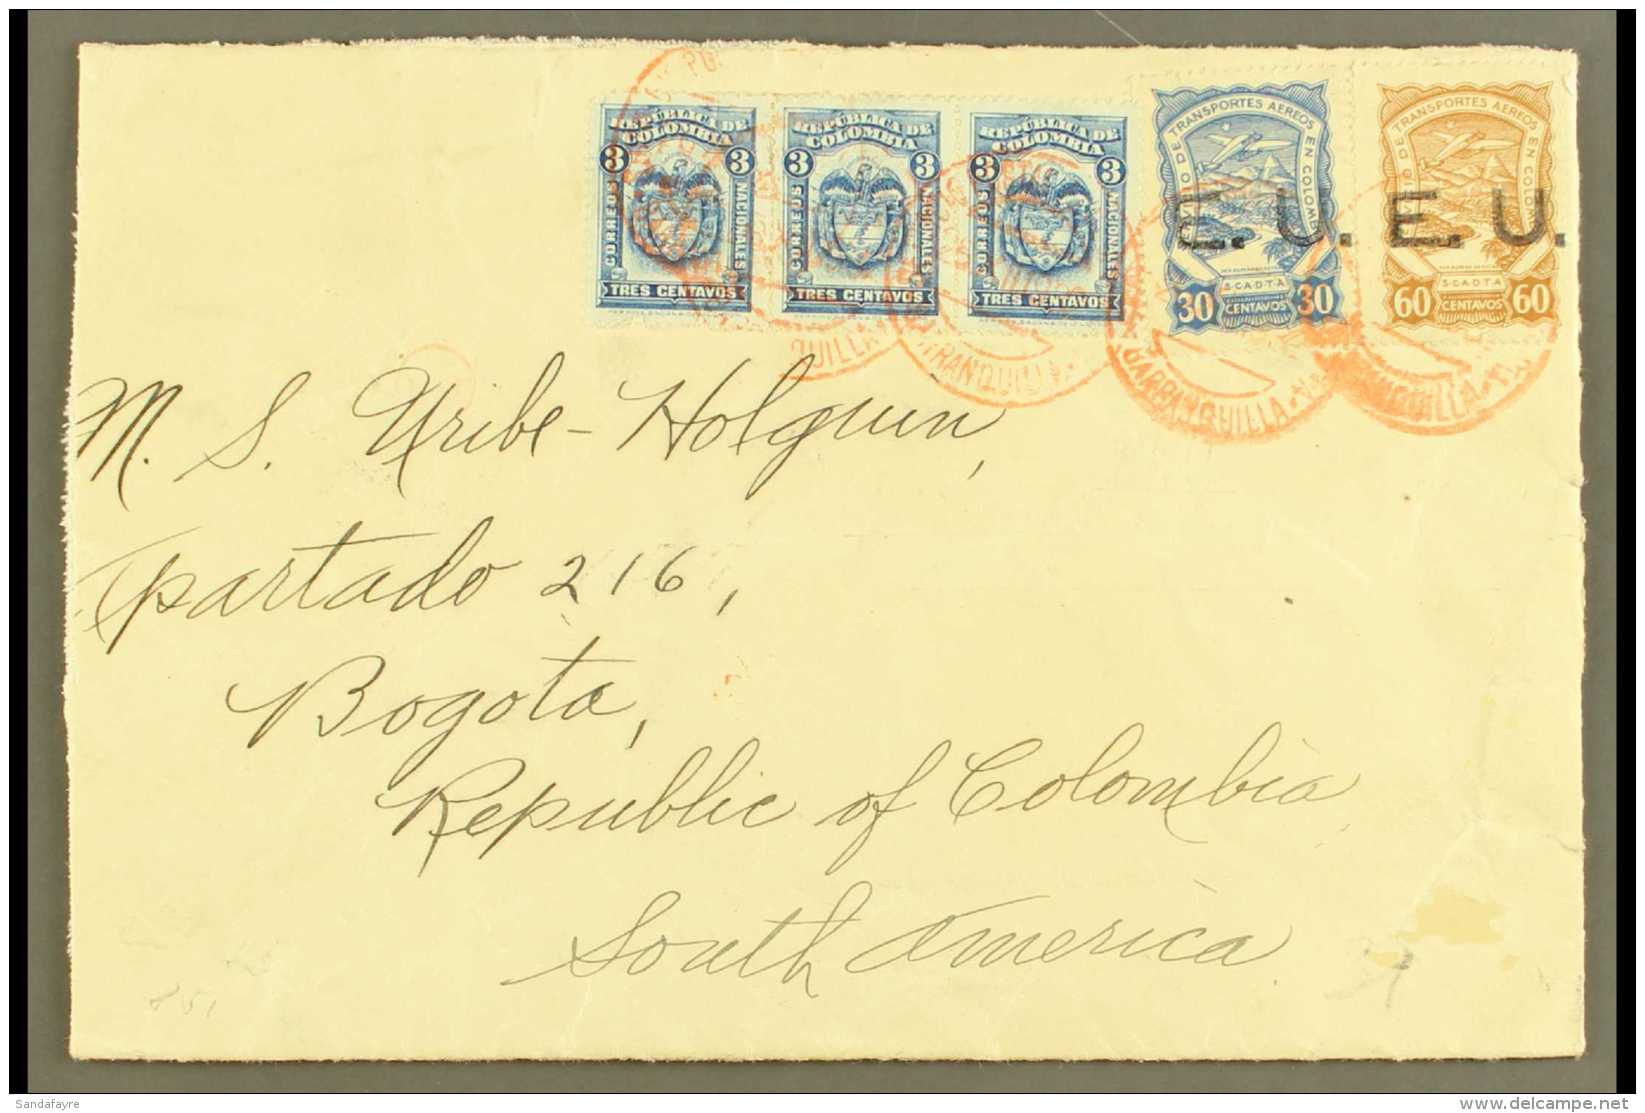 REPÚBLICA DE COLOMBIA
3 3
CORREOS NACIONALES
TRES CENTAVOS
REPÚBLICA DE COLOMBIA
3 3
CORREOS NACIONALES
TRES CENTAVOS
REPÚBLICA DE COLOMBIA
3 3
CORREOS NACIONALES
TRES CENTAVOS
DE TRANSPORTES AEREOS EN COLOMBIA
E. U.
S.C.A.D.T.A.
30 CENTAVOS 30
DE TRANSPORTES AEREOS EN COLOMBIA
E. U.
S.C.A.D.T.A.
60 CENTAVOS 60
BARRANQUILLA
M. S. Uribe-Holguin,
Apartado 216,
Bogota,
Republic of Colombia
South America
Sandafayre
www.delcampe.net